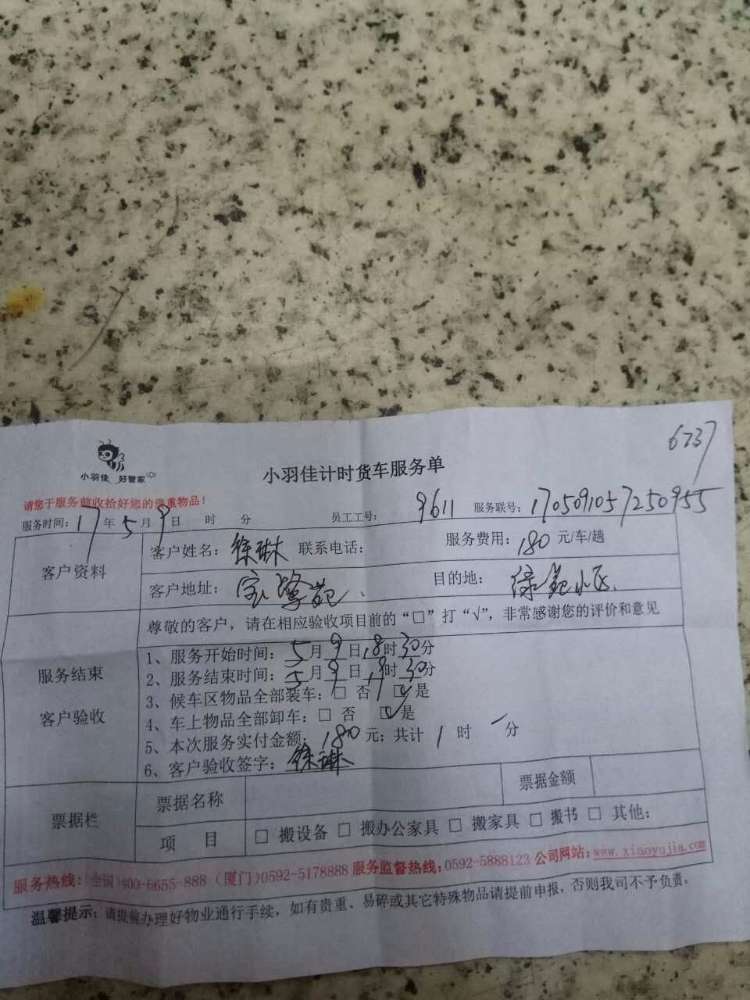 6737
小羽佳 好管家
小羽佳计时货车服务单
请您于服务前收拾好您的贵重物品!
服务时间: 17年5月9日 时 分 员工工号: 9611 服务联号: 1705091057250955
客户资料
客户姓名: 徐琳 联系电话: 服务费用: 180 元/车/趟
客户地址: 目的地: 绿苑小区
尊敬的客户, 请在相应验收项目前的“□”打“√”, 非常感谢您的评价和意见
服务结束
客户验收
1、服务开始时间: 5月9日18时30分
2、服务结束时间: 5月9日19时30分
3、候车区物品全部装车: □ 否 ☑是
4、车上物品全部卸车: □ 否 ☑是
5、本次服务实付金额: 180元; 共计 1 时 一 分
6、客户验收签字: 徐琳
票据栏
票据名称 票据金额
项 目 □ 搬设备 □ 搬办公家具 □ 搬家具 □ 搬书 □ 其他:
服务热线: 全国)400-6655-888 (厦门)0592-5178888 服务监督热线:0592-5888123 公司网站: www.xiaoyujia.com
温馨提示: 请提前办理好物业通行手续, 如有贵重、易碎或其它特殊物品请提前申报, 否则我司不予负责。